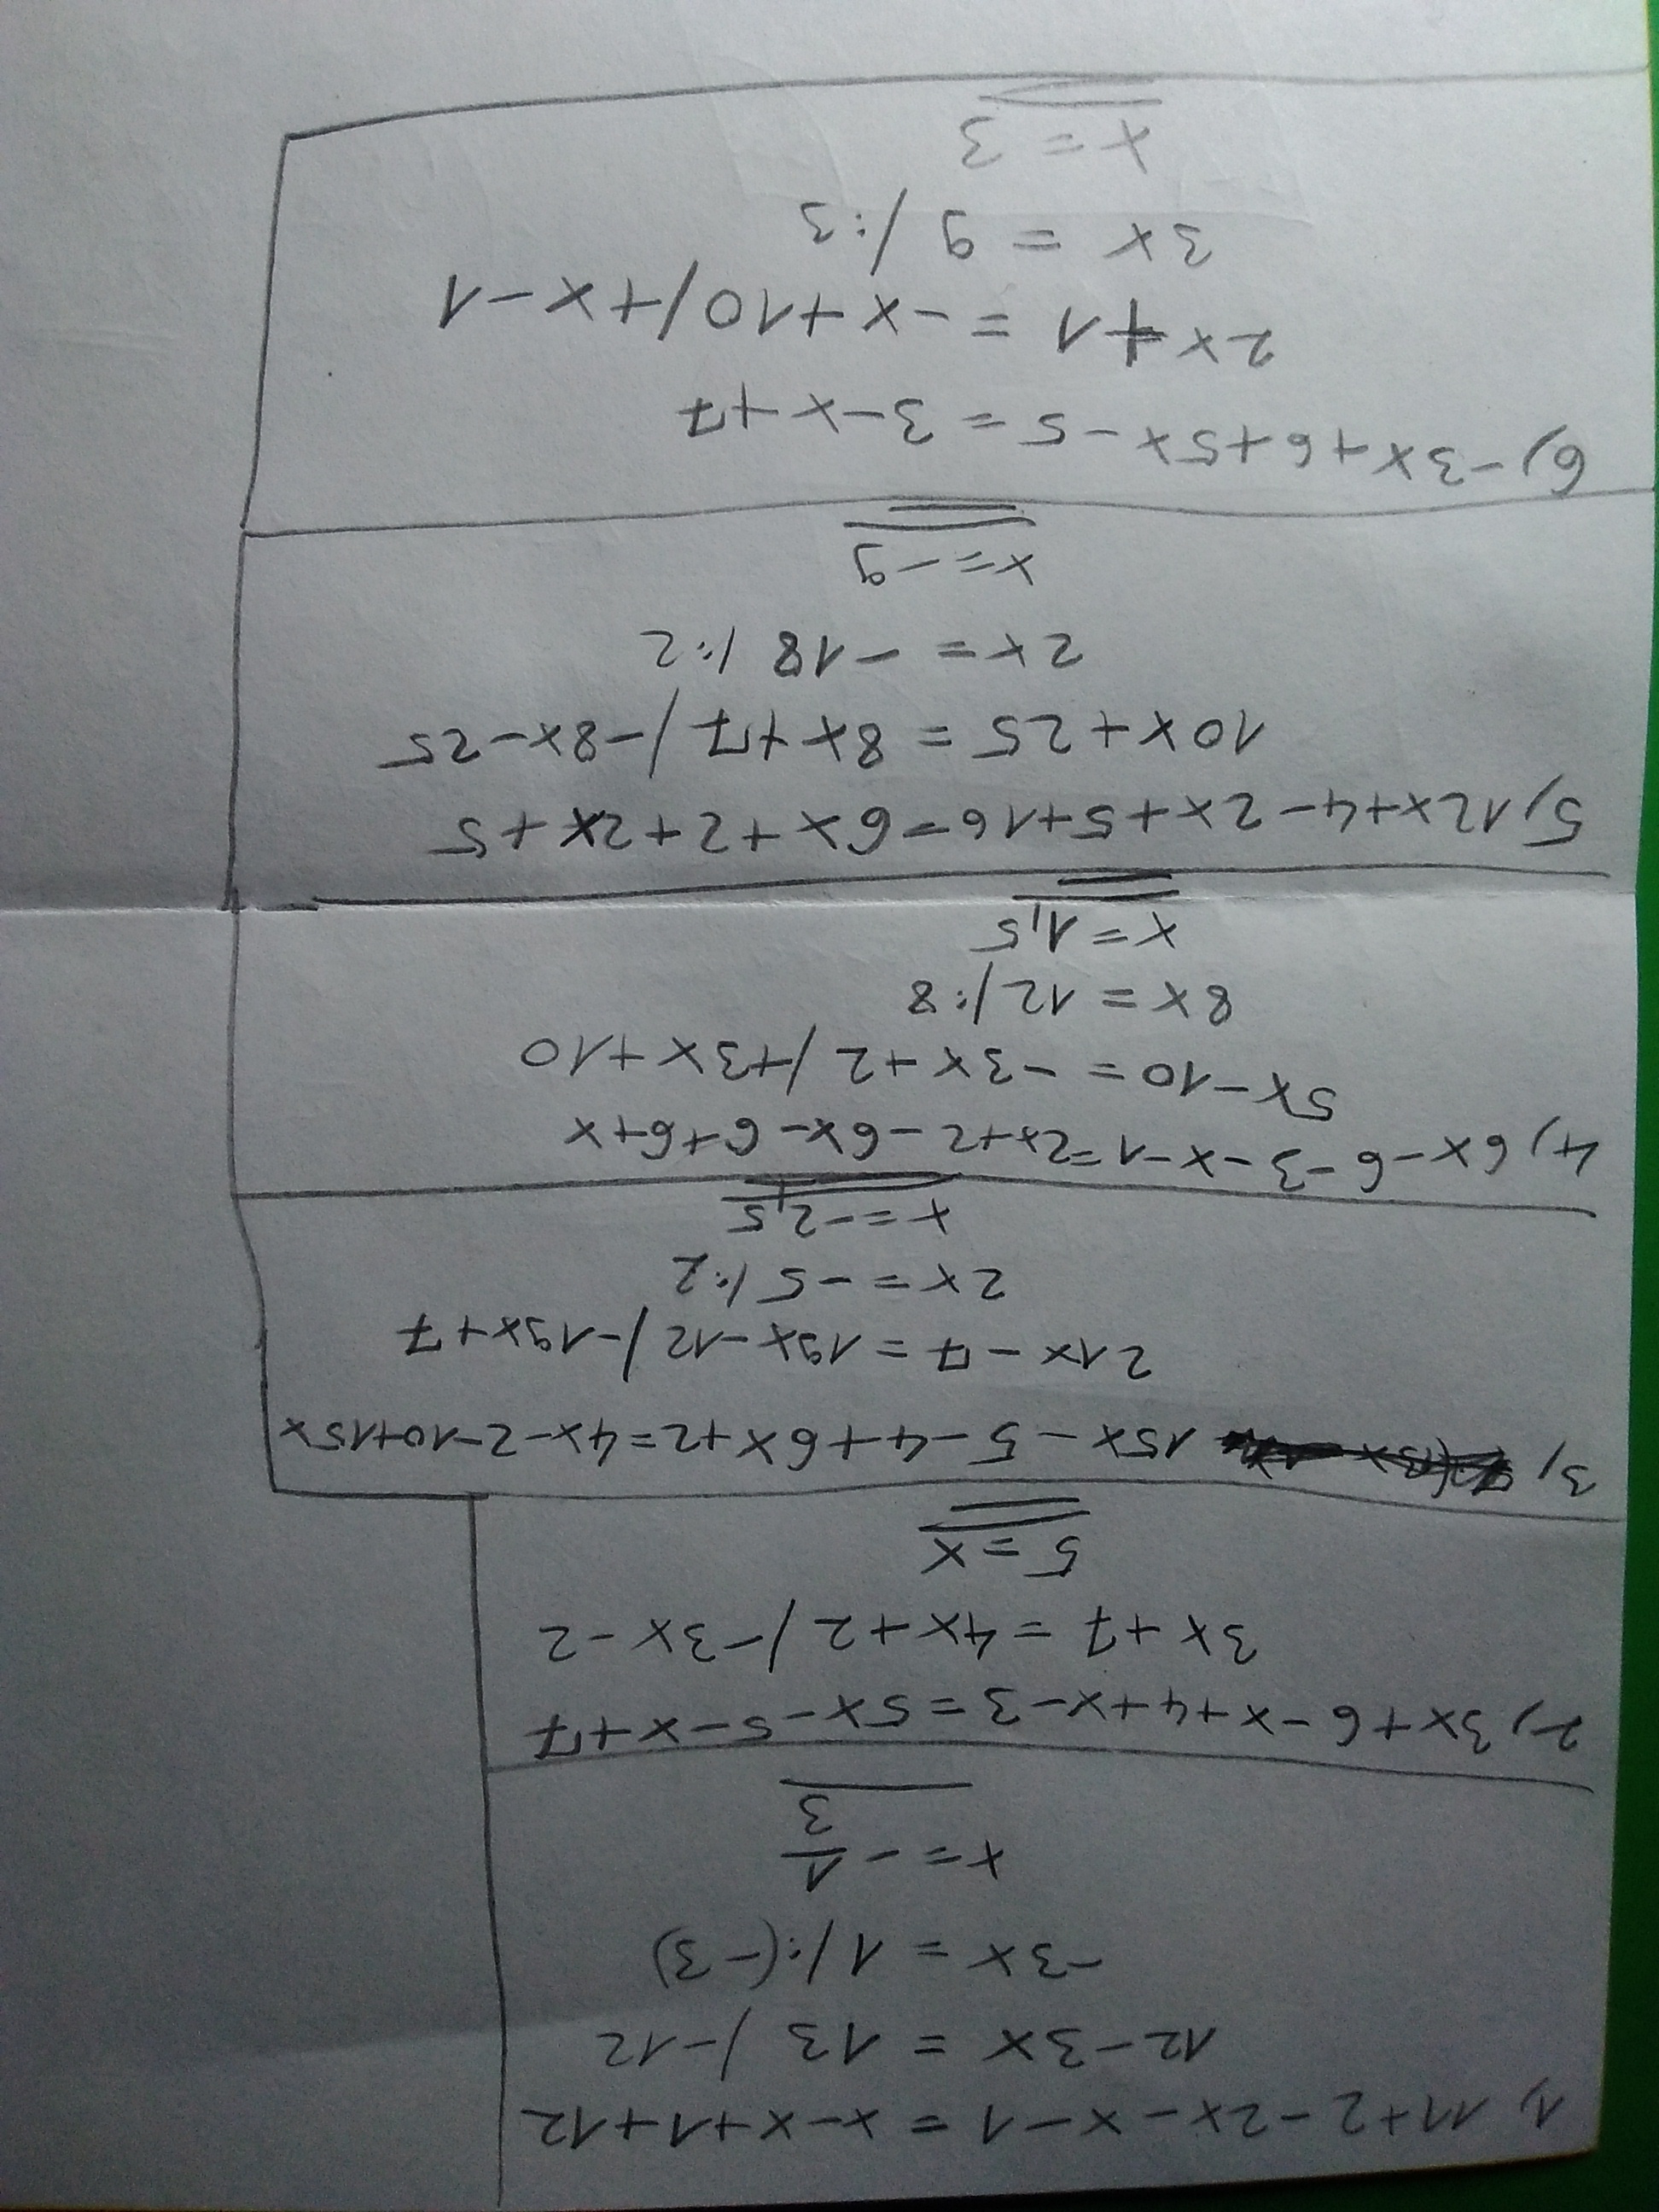 1, 11+2-2x-x-1 = x-x+1+12
12-3x = 13 /-12
-3x = 1 /:(-3)
x = - 1/3
2, 3x+6-x+4+x-3 = 5x-5-x+7
3x+7 = 4x+2 /-3x-2
5 = x
3, 15x-5-4+6x+2=4x-2-10+15x
21x-7 = 19x-12 /-19x+7
2x = -5 /:2
x = -2,5
4, 6x-6-3-x-1=2x+2-6x-6+6+x
5x-10 = -3x+2 /+3x+10
8x = 12 /:8
x = 1,5
5, 12x+4-2x+5+16=6x+2+2x+5
10x+25 = 8x+7 /-8x-25
2x = -18 /:2
x = -9
6, -3x+6+5x-5 = 3-x+7
2x+1 = -x+10 /+x-1
3x = 9 /:3
x = 3